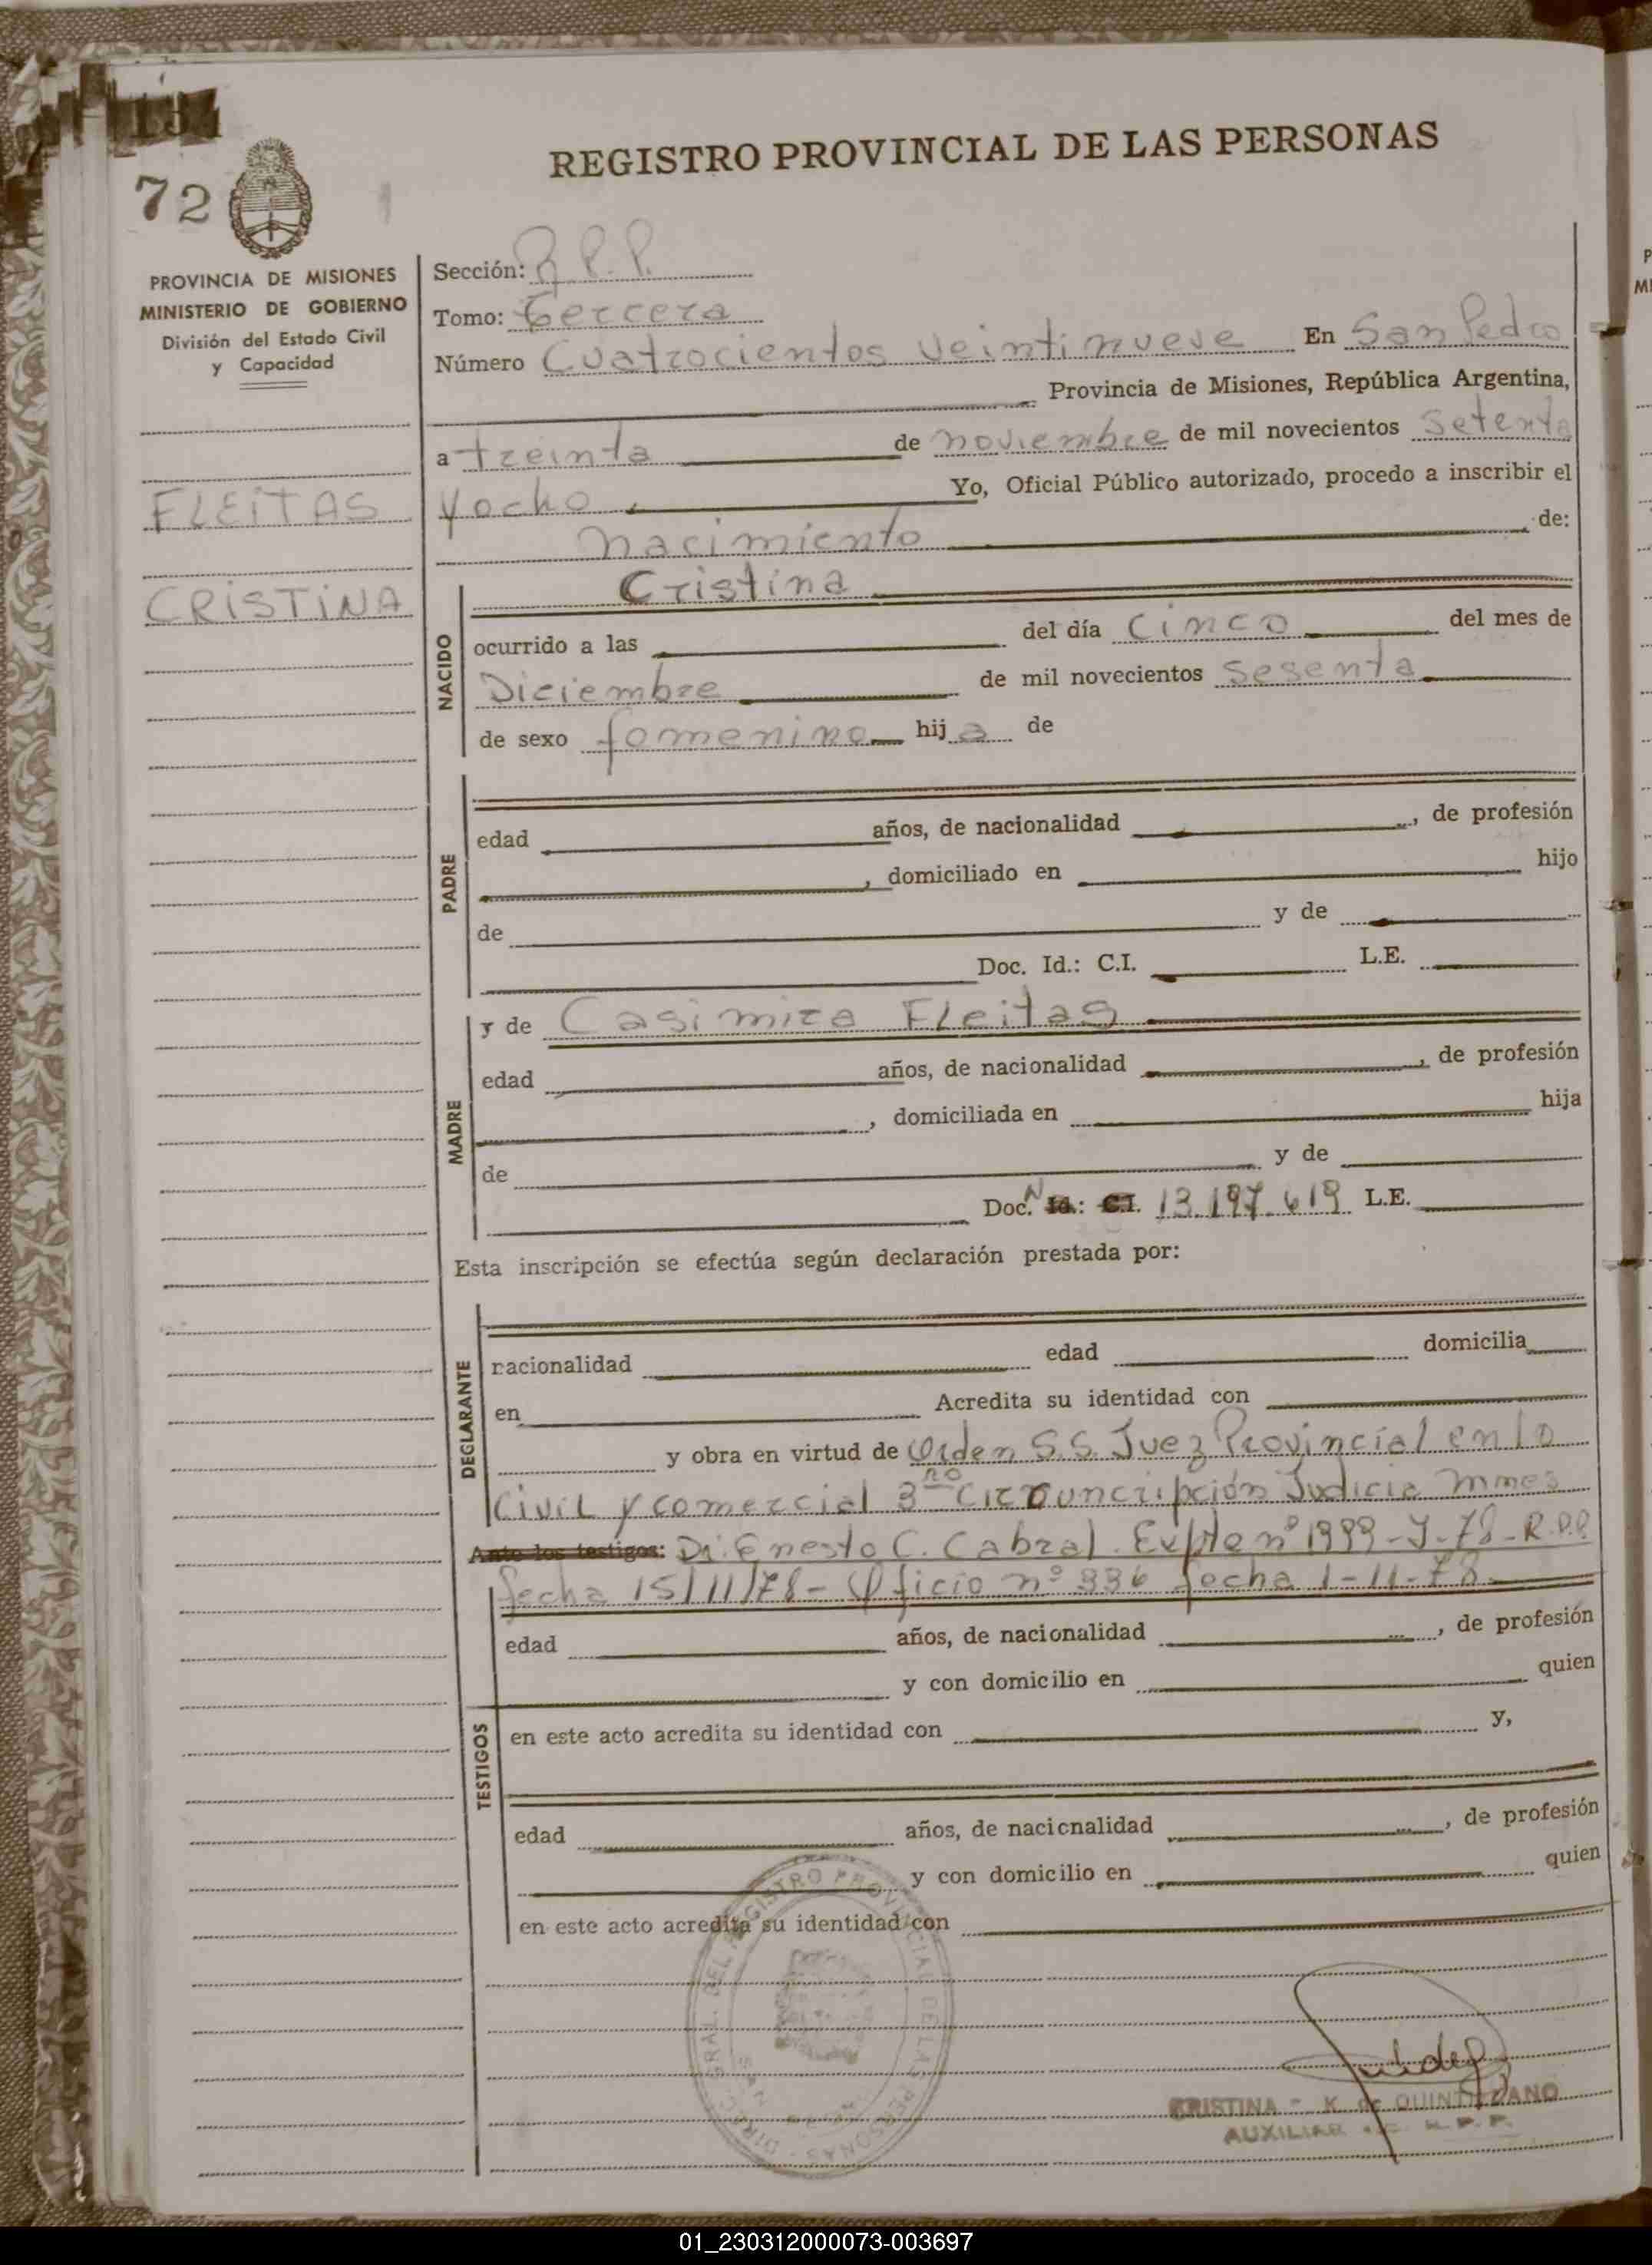 72
REGISTRO PROVINCIAL DE LAS PERSONAS
PROVINCIA DE MISIONES
MINISTERIO DE GOBIERNO
División del Estado Civil
y Capacidad
FLEITAS
CRISTINA
Sección: R.P.P.
Tomo: tercera
Número Cuatrocientos veintinueve En San Pedro
Provincia de Misiones, República Argentina,
a treinta de noviembre de mil novecientos setenta
y ocho Yo, Oficial Público autorizado, procedo a inscribir el
nacimiento de:
NACIDO
Cristina
ocurrido a las del día cinco del mes de
Diciembre de mil novecientos sesenta
de sexo femenino hija de
PADRE
edad años, de nacionalidad , de profesión
, domiciliado en hijo
de y de
Doc. Id.: C.I. L.E.
MADRE
y de Casimira Fleitas
edad años, de nacionalidad , de profesión
, domiciliada en hija
de y de
Doc. N Id.: C.I. 13.197.619 L.E.
Esta inscripción se efectúa según declaración prestada por:
DECLARANTE
nacionalidad edad domicilia
en Acredita su identidad con
y obra en virtud de Orden S.S. Juez Provincial en lo
Civil y comercial 3ra Circuncripción Judicia Mnes
Ante los testigos: Dr. Ernesto C. Cabral. Expte nº 1999-J-78-R.P.P.
fecha 15/11/78- Oficio nº 936 fecha 1-11-78.
TESTIGOS
edad años, de nacionalidad , de profesión
y con domicilio en quien
en este acto acredita su identidad con y,
edad años, de nacionalidad , de profesión
y con domicilio en quien
en este acto acredita su identidad con
DIREC. GRAL. DEL REGISTRO PROVINCIAL DE LAS PERSONAS
SAN
CRISTINA K. de QUINTELANO
AUXILIAR R.P.P.
01_230312000073-003697